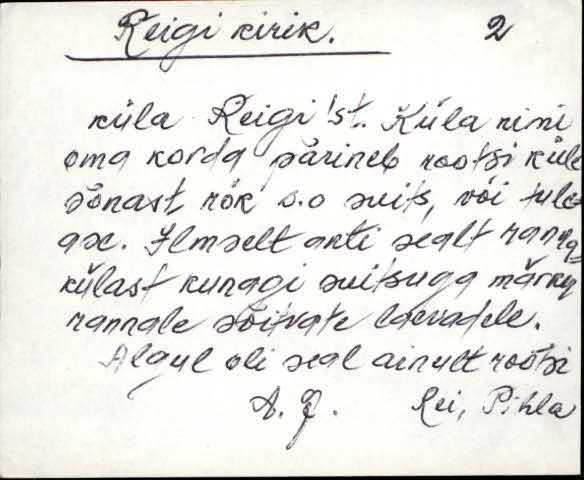 Reigi kirik. 2
küla Reigi'st. Küla nimi
oma korda pärineb rootsi küle
sõnast rök s.o suits, või tule-
ase. Ilmselt anti sealt ranna
külast kunagi suitsuga märku
rannale sõitvate laevadele.
Algul oli seal ainult rootsi
A. J. Rei, Pihla